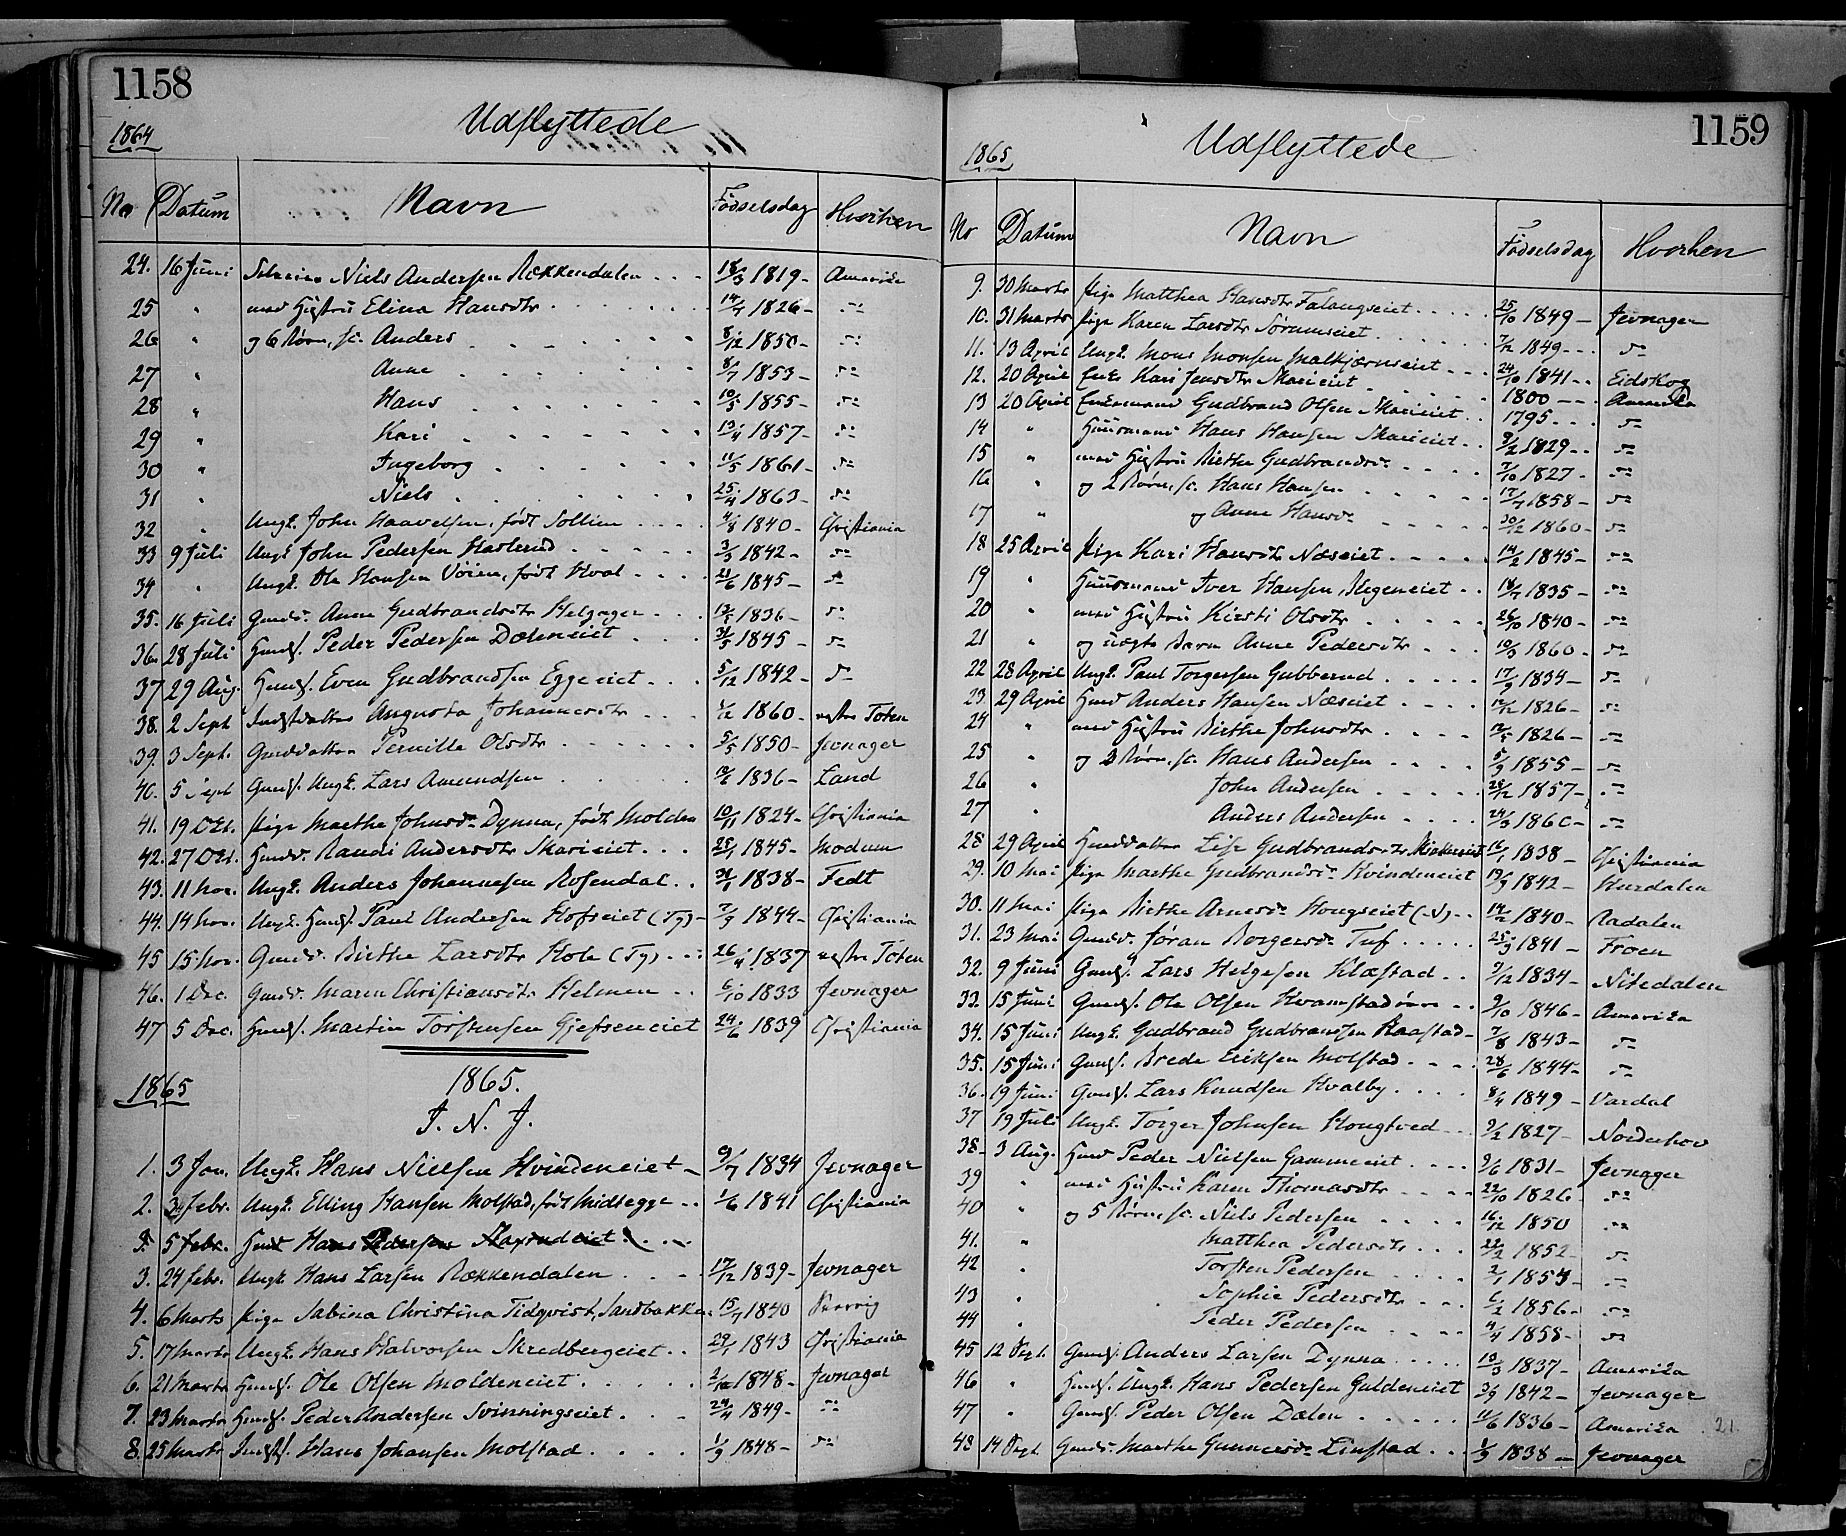 1158
Udflyttede
1864
No Datum Navn Fødselsdag Hvorhen
24. 16 Juni Niels Andersen Rækkendalen . . . 18/3 1819 - Amerika
25 " med Hustru Elina Hansdtr . . . . . 14/7 1826 - do
26 " og 6 Børn, sc. Anders . . . . . . 8/12 1850 - do
27 " Anne . . . . . . 8/7 1853 - do
28 " Hans . . . . . . 10/5 1855 - do
29 " Kari . . . . . . 13/4 1857 - do
30 " Ingeborg . . . . . . 11/5 1861 - do
31 " Niels . . . . . . 25/4 1863 - do
32 " Ungk. John Haavelsen, født Sollien . . . . 4/8 1840 - Christiania
33 9 Juli Ungk John Pedersen Haslerud . . . . . 3/3 1842 - do
34 " Ungk. Ole Hansen Vøien, født Hval . . . . 21/6 1845 - do
35. 16 Juli Gaardd. Anne Gudbrandsdtr Helgager . . . 1836 - do
36. 28 Juli Huusf. Peder Pedersen Dæhneiet . . . 1845 - do
37 29 Aug. Huusf. Even Gudbrandsen Eggeeiet . . . 5/12 1842 - do
38. 2 Sept Augusta Johannesdtr . . . 1860 - vestre Toten
39. 3 Sept. Gaarddatter Pernille Olsdtr . . . . . 5/5 1850 - Jevnager
40. 5 Sept Gaardf. Ungk. Lars Amundsen . . . . . 1836 - Land
41. 19 Oct. Pige Marthe Johnsdr Dynna, født Molden 10/11 1824 - Christiania
42. 27 Oct. Huusd. Randi Andersdtr Skarieiet . . . 25/1 1845 - Modum
43. 11 Nov. Ungk. Anders Johannesen Rosendal . . 1838 - Fedt
44. 14 Nov. Ungk. Huusf. Paul Andersen Hofseiet (Tg) - 7/9 1844 - Christiania
45 15 Nov. Gaardd. Birthe Larsdtr Hole (Tg) . . . 26/4 1837 vestre Toten
46. 1 Dec. Gaardd. Maren Christiansdtr Helmen . . 6/10 1833 Jevnager
47 5 Dec. Huusf. Martin Torstensen Gjefseneiet 24/6 1839 Christiania
1865 1865.
I. N. J.
1. 3 Jan. Ungk. Hans Nielsen Hvindeneiet - 9/7 1834 Jevnager
2. 3 Febr. Ungk. Elling Hansen Molstad, født Midtegge . . 1/6 1841 Christiania
3. 5 Febr. Huusf Hans Pedersen . . .
3. 24 Febr. Ungk Hans Larsen Rækkendalen . . . . 17/12 1839 - Jevnager
4. 6 Marts Pige Sabina Christina Tidqvist, Sandbakken 15/7 1840
5. 17 Marts Ungk. Hans Halvorsen Skredbergeiet . . 29/1 1843 Christiania
6. 21 Marts Huusf. Ole Olsen Moldeneiet . . . . . 1848 - Jevnager
7. 23 Marts Huusf. Peder Andersen Svinningseiet . . . 24/4 1849 - do
8. 25 Marts Hans Johansen Molstad . . . . 1/9 1848 - do
1159
Udflyttede
1865
Nr Datum Navn Fødselsdag Hvorhen
9. 30 Marts Pige Matthea Hansdtr Falangseiet . . . . 25/10 1849 - Jevnager
10. 31 Marts Pige Karen Larsdtr Sørumseiet . . . . . . 7/12 1849 - - - do
11. 13 April Ungk. Mons Monsen Malkjærnseiet . . . 24/10 1841 - - Eidskog
12. 20 April Enke Kari Jensdtr Skarieiet . . . . . 1800 - - - Amerika
13 20 April Enkemand Gudbrand Olsen Skarieiet . . 1795 . . . do
14 " Huusmand Hans Hansen Skarieiet . . 8/2 1829 . . do
15 " med Hustru Birthe Gudbrandsdr . . . . 7/10 1827 - do
16 " og 2 Børn, sc. Hans Hansen . . . . . 17/7 1858 - do
17 " og Anne Hansdr . . . . . 30/12 1860 - do
18 25 April Pige Kari Hansdtr Næseiet . . . . . 14/2 1845 - do
19 " Huusmand Iver Hansen, Aegeneiet . . 18/7 1835 - do
20 " med Hustru Kirsti Olsdtr . . . . . . 26/10 1840 - do
21 " og uægte Barn Anne Pedersdtr . . . 10/3 1860 - do
22 28 April Ungk. Paul Torgersen Gubberud . . . . . 17/9 1834 - do
23. 29 April Huusm Anders Hansen Næseiet . . . . 1826 - do
24 " med Hustru Birthe Johnsdtr . . . . . 1826 - do
25 " og 3 Børn, sc. Hans Andersen . . . . 5/9 1855 - do
26 " John Andersen . . . . . 1857 - do
27 " Anders Andersen . . . . 1860 - do
28 29 April Huusdatter Lise Gudbrandsdtr 1838 - Christiania
29. 10 Mai Pige Marthe Gudbrandsdr Hvindeneiet 1842 - Hurdalen
30. 11 Mai Pige Birthe Arnesdr Hougseiet . . 14/2 1840 - Aadalen
31. 23 Mai Gaardd. Jøran Borgersdr Tuf . . . . . 25/9 1841 - Froen
32. 9 Juni Gaardf. Lars Helgesen Klæstad . . 9/12 1834 - Nitedalen
33. 15 Juni Gaardf. Ole Olsen Hvamstadøvre . . 9/10 1846 - Amerika
34. 15 Juni Ungk. Gudbrand Gudbrandsen Raastad - 7/8 1843 - do
35. 15 Juni Gaardf. Brede Eriksen Molstad . . . . 28/6 1844 - do
36. 19 Juni Gaardf. Lars Knudsen Hvalby . . . . 8/4 1849 - Vardal
37 19 Juli Ungk. Torger Johnsen Hougtved . . . 9/2 1827 - Norderhov
38 - 3 Aug. Huusm Peder Nielsen Gammeeiet . . . . 9/6 1831 - Jevnager
39 " med Hustru Karen Thomasdtr . . . . 22/10 1826 do
40 " og 5 Børn, sc. Niels Pedersen . . . . 16/12 1850 do
41. " Matthea Pedersdtr . . . 22/2 1852 - do
42 " Torsten Pedersen . . . . 2/1 1854 - do
43 " Sophie Pedersdtr . . . 6/2 1856 - do
44 " Peder Pedersen . . . . 4/4 1858 - do
45 12 Sept. Gaardf. Anders Larsen Dynna . . . . . 13/3 1837 - Amerika
46 " Huusf. Ungk. Hans Pedersen Guldeneiet 3/9 1842 - Jevnager
47 " Gaardf. Peder Olsen Dælen . . . . . 11/6 1836 - Amerika
48 14 Sept. Gaardd. Marthe Gunnersdr Linstad . . . 1/3 1838 - Jevnager
21.